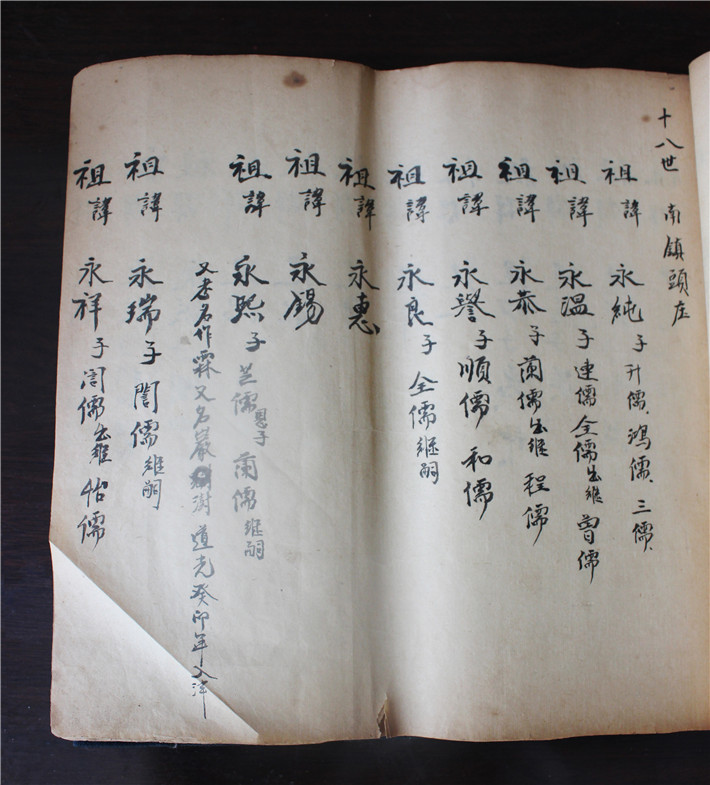 十八世 南鎮頭庄
祖諱 永純 子 升儒、鴻儒、三儒、
祖諱 永溫 子 連儒 全儒出繼 曾儒
祖諱 永恭 子 蘭儒出繼 程儒
祖諱 永譽 子 順儒 和儒
祖諱 永良 子 全儒繼嗣
祖諱 永惠
祖諱 永錫
祖諱 永熙 子 芝儒 蘭儒繼嗣
又老名作霖又名巖 道光癸卯年入泮
祖諱 永瑞 子 誾儒繼嗣
祖諱 永祥 子 誾儒出繼 怡儒